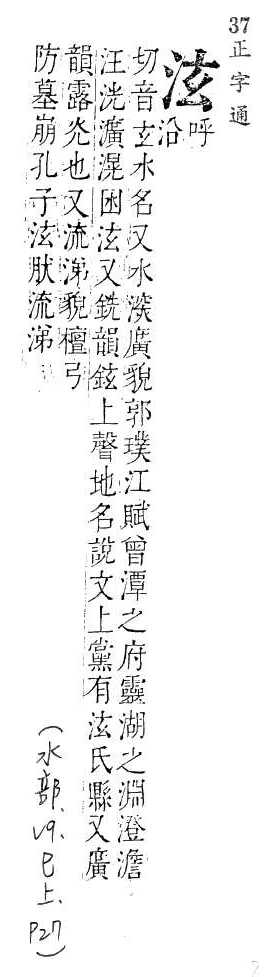 37正字通
泫
呼沿
切音玄水名又水深廣貌郭璞江賦曾潭之府靈湖之淵澄澹
汪洸瀇滉囦泫又銑韻鉉上聲地名說文上黨有泫氏縣又廣
韻露光也又流涕貌檀弓
防墓崩孔子泫肰流涕
(水部、巳上、P27)